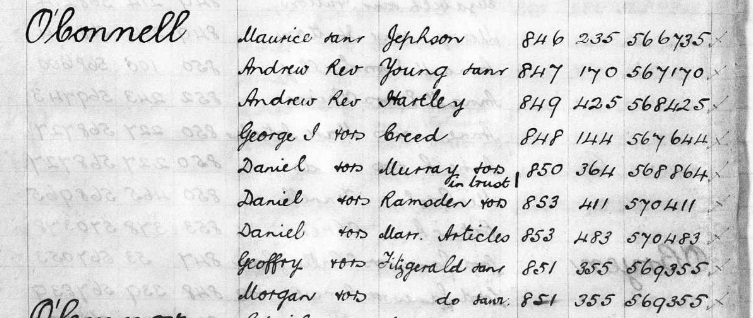 O'Connell Maurice sanr Jephson 846 235 566735
Andrew Rev Young sanr 847 170 567170
Andrew Rev Hartley 849 425 568425
George I + ors Creed 848 144 567644
Daniel + ors Murray + ors 850 364 568864
in trust
Daniel + ors Ramsden + ors 853 411 570411
Daniel + ors Marr. Articles 853 483 570483
Geoffry + ors Fitzgerald sanr 851 355 569355
Morgan + ors do sanr. 851 355 569355